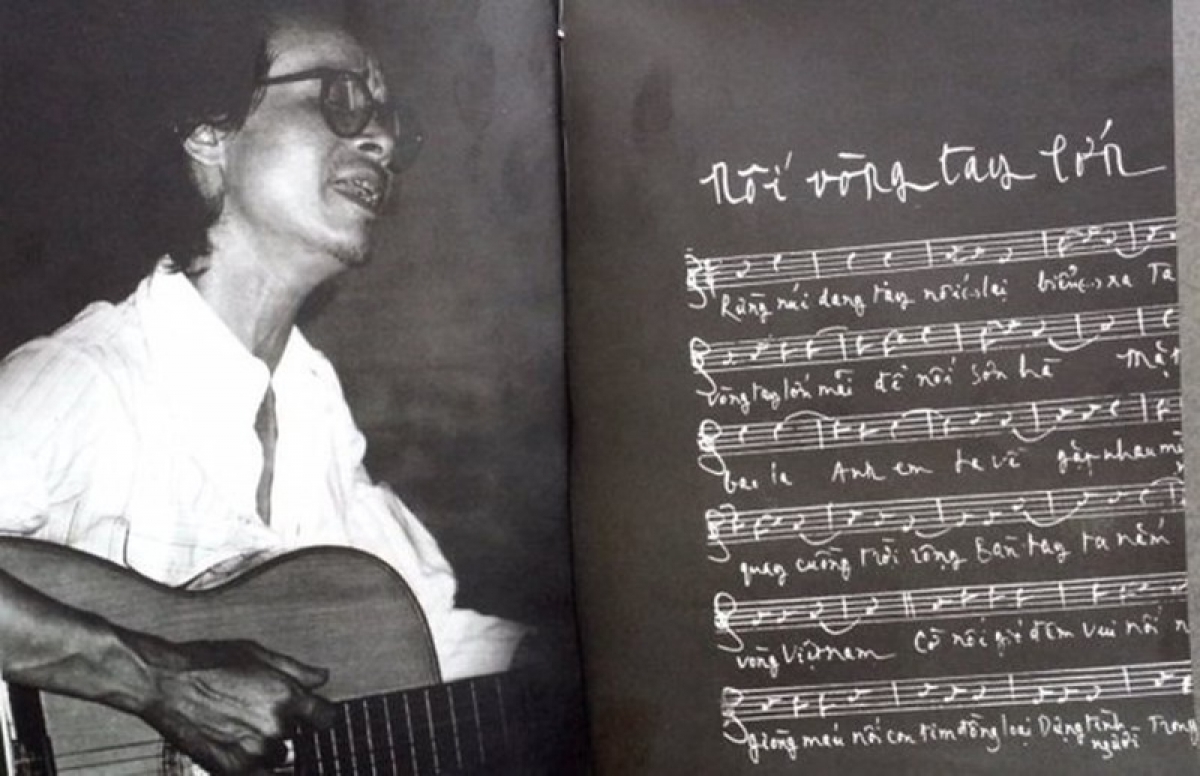 Nối vòng tay lớn
Rừng núi dang tay nối(..)lại biển(..) xa Ta
vòng tay lớn mãi để nối sơn hà Mặt
bao la Anh em ta về gặp nhau mừ
quay cuồng trời rộng Bàn tay ta nắm
vòng Việt nam Cờ nối gió đêm vui nối n
giòng máu nối con tim đồng loại Dựng tình người Trong